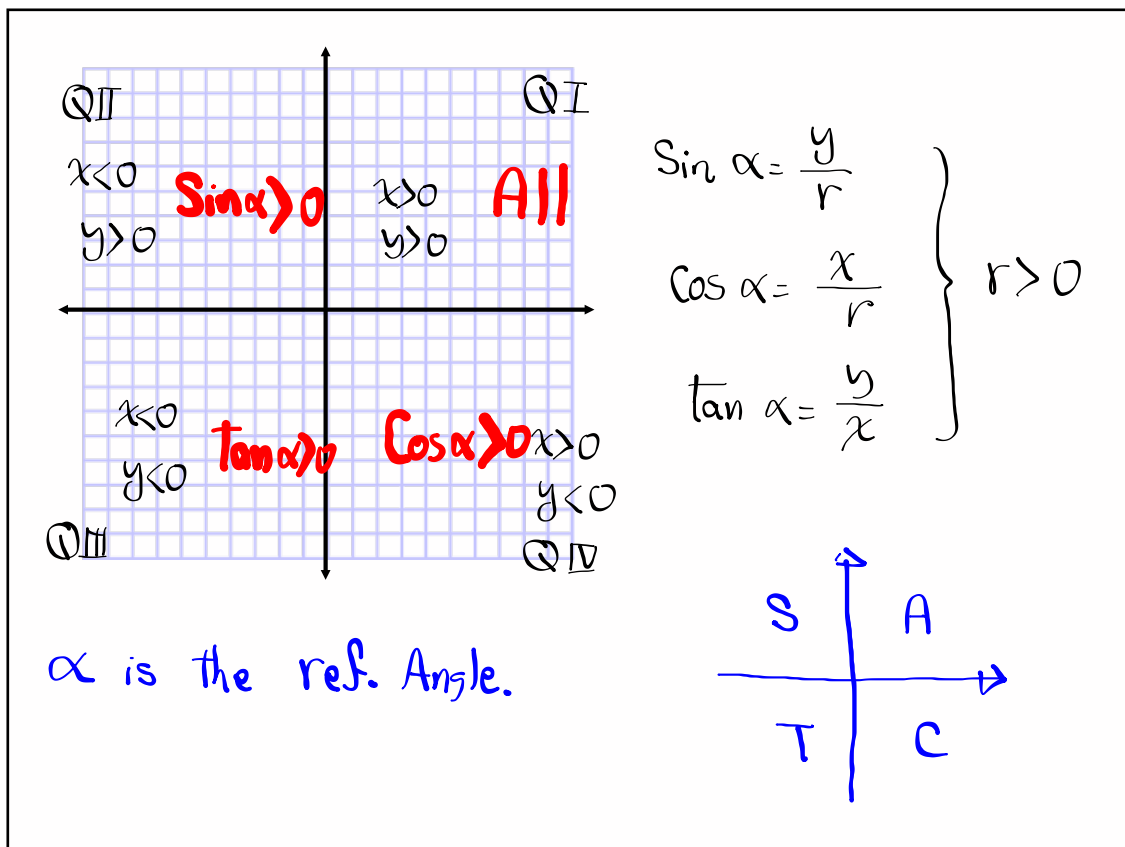 QII
QI
x<0
y>0
Sinα>0
x>0
y>0
All
x<0
y<0
tanα>0
Cosα>0
x>0
y<0
QIII
QIV
Sin α = y/r
Cos α = x/r
tan α = y/x
r>0
α is the ref. Angle.
S A
T C